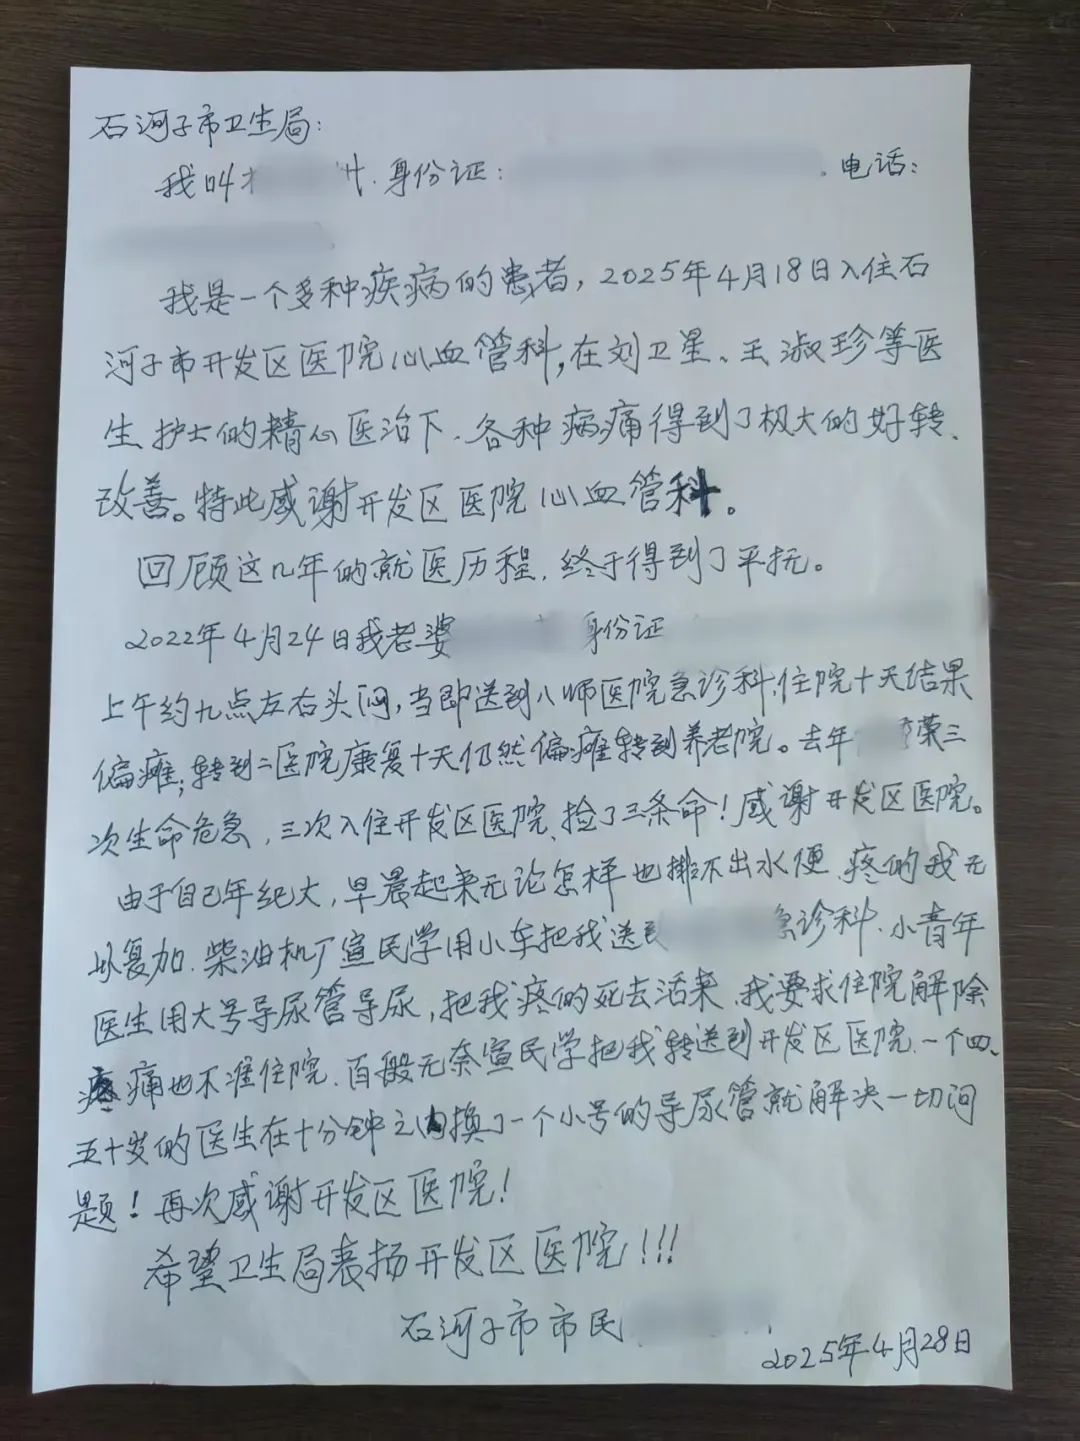 石河子市卫生局：
我叫 身份证： 。电话：
我是一个多种疾病的患者，2025年4月18日入住石
河子市开发区医院心血管科，在刘卫星、王淑珍等医
生、护士的精心医治下、各种病痛得到了极大的好转、
改善。特此感谢开发区医院心血管科。
回顾这几年的就医历程，终于得到了平抚。
2022年4月24日我老婆 身份证
上午约九点左右头闷，当即送到八师医院急诊科，住院十天结果
偏瘫；转到二医院康复十天仍然偏瘫转到养老院。去年 荣三
次生命危急，三次入住开发区医院、捡了三条命！感谢开发区医院。
由于自己年纪大，早晨起来无论怎样也排不出水便、疼的我无
以复加、柴油机厂宣民学用小车把我送到 急诊科、小青年
医生用大号导尿管导尿，把我疼的死去活来、我要求住院解除
疼痛也不准住院、百般无奈宣民学把我转送到开发区医院、一个四、
五十岁的医生在十分钟之内换了一个小号的导尿管就解决一切问
题！再次感谢开发区医院！
希望卫生局表扬开发区医院！！！
石河子市市民
2025年4月28日